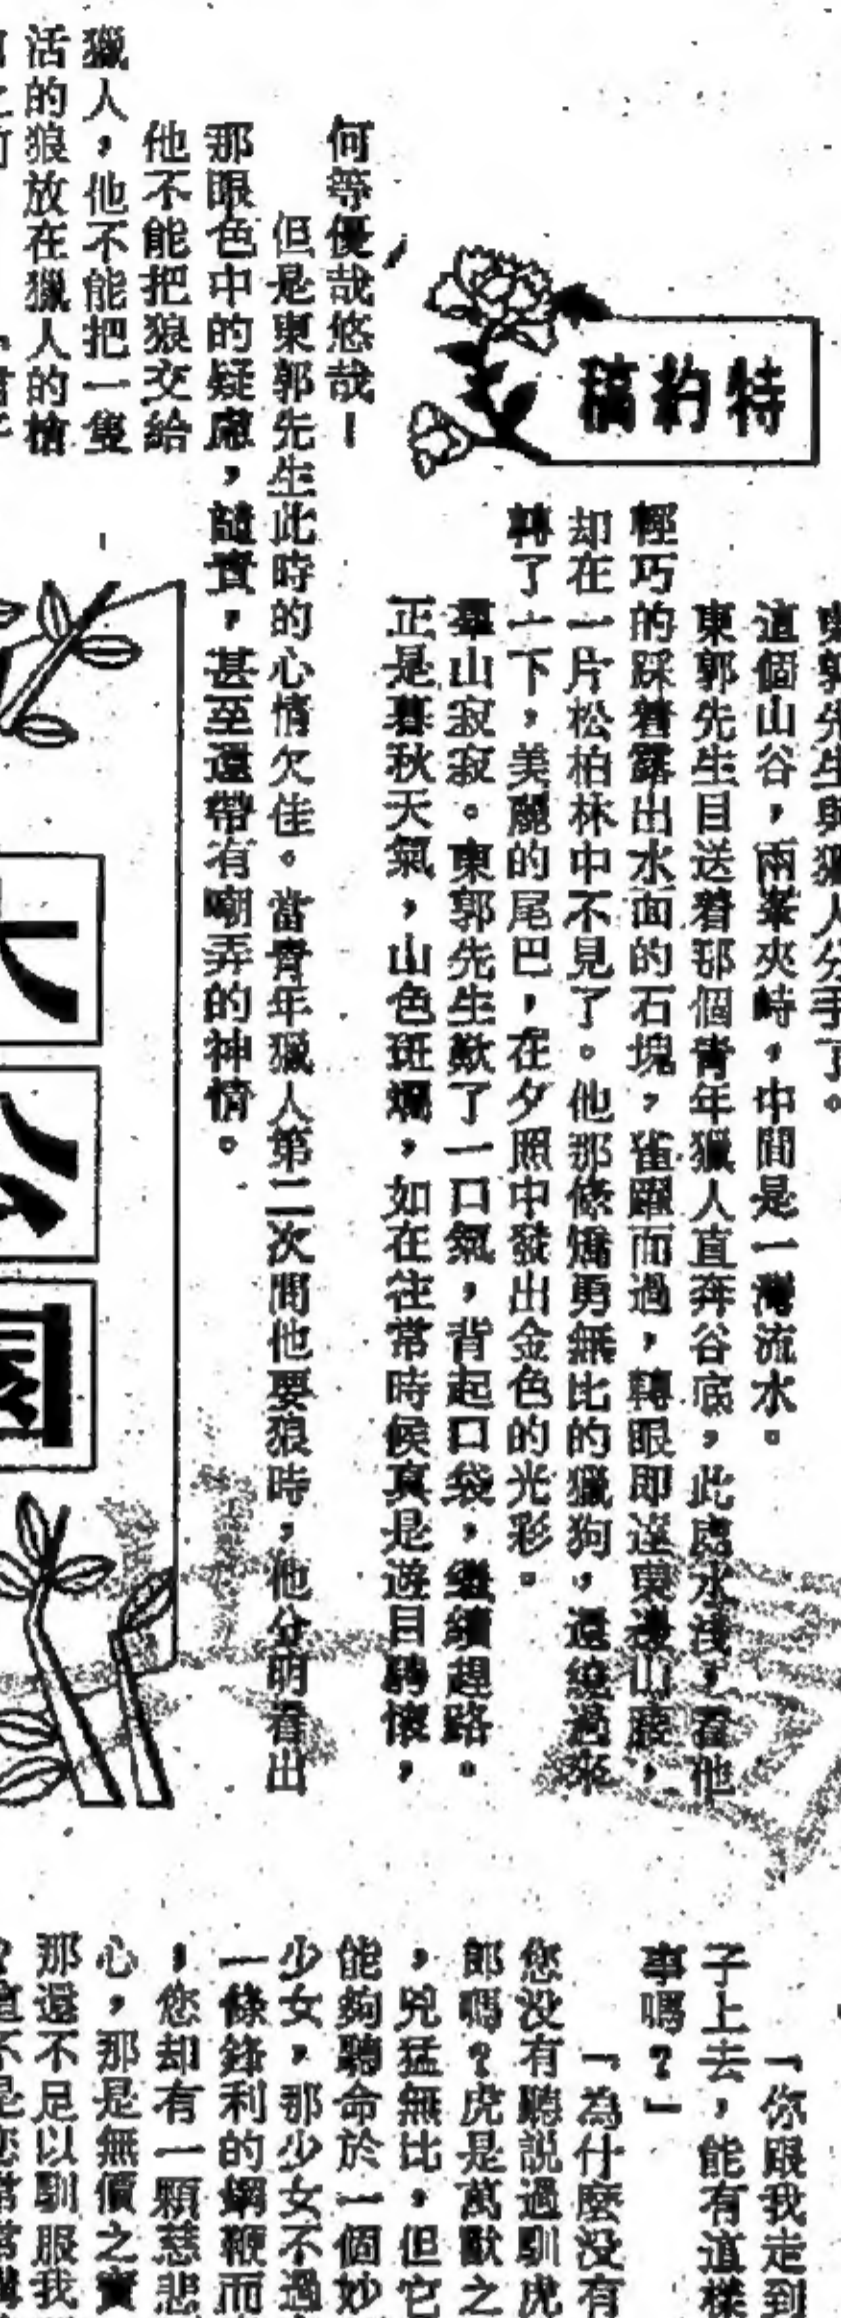 特約稿
東郭先生與獵人分手了。
這個山谷，兩峯夾峙，中間是一灣流水。
東郭先生目送着那個青年獵人直奔谷底，此處水淺，看他
輕巧的踩着露出水面的石塊，雀躍而過，轉眼即達東邊山麓，
却在一片松柏林中不見了。他那條矯勇無比的獵狗，還繞過來
轉了一下，美麗的尾巴，在夕照中發出金色的光彩。
羣山寂寂。東郭先生歎了一口氣，背起口袋，繼續趕路。
正是暮秋天氣，山色斑斕，如在往常時候真是遊目騁懷，
何等優哉悠哉！
但是東郭先生此時的心情欠佳。當青年獵人第二次問他要狼時，他分明看出
那眼色中的疑慮，譴責，甚至還帶有嘲弄的神情。
他不能把狼交給
獵人，他不能把一隻
活的狼放在獵人的槍
大公園
「你跟我走到
子上去，能有這樣
事嗎？」
「為什麼没有
您没有聽説過馴虎
郎嗎？虎是萬獸之
，兇猛無比，但它
能夠聽命於一個妙
少女，那少女不過
一條鋒利的鋼鞭而
，您却有一顆慈悲
心，那是無價之寶
那還不足以馴服我